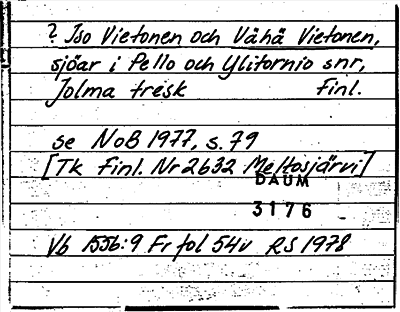 ? Iso Vietonen och Vähä Vietonen,
sjöar i Pello och Ylitornio snr,
Jolma träsk Finl.
se NoB 1977, s. 79
[Tk Finl. Nr 2632 Meltosjärvi]
DAUM
3176
Vb 1556:9 Fr fol 54v RS 1978